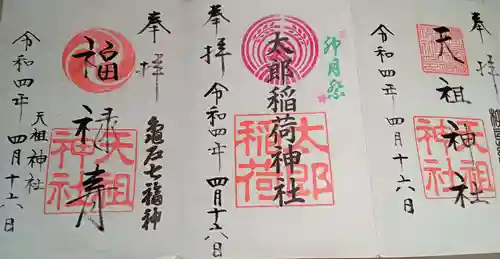 奉拝
天祖神社
天祖神社
令和四年 四月十六日
卯月祭
奉拝
太郎稲荷神社
太郎稲荷
令和四年 四月十六日
奉拝
亀戸七福神
福禄寿
天祖神社
天祖神社
令和四年 四月十六日